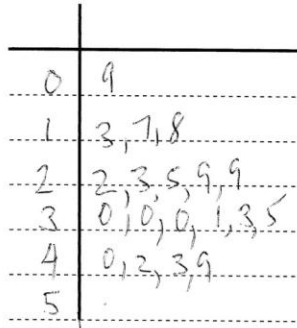 0 9
1 3,7,8
2 2,3,5,9,9
3 0,0,0,1,3,5
4 0,2,3,9
5